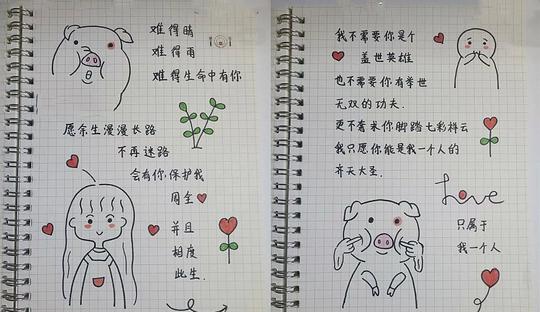 难得晴
难得雨
难得生命中有你
愿余生漫漫长路
不再迷路
会有你保护我
周全
并且
相度
此生.
我不需要你是个
盖世英雄
也不需要你有举世
无双的功夫.
更不奢求你脚踏七彩祥云
我只愿你能是我一个人的
齐天大圣.
Love
只属于
我一个人